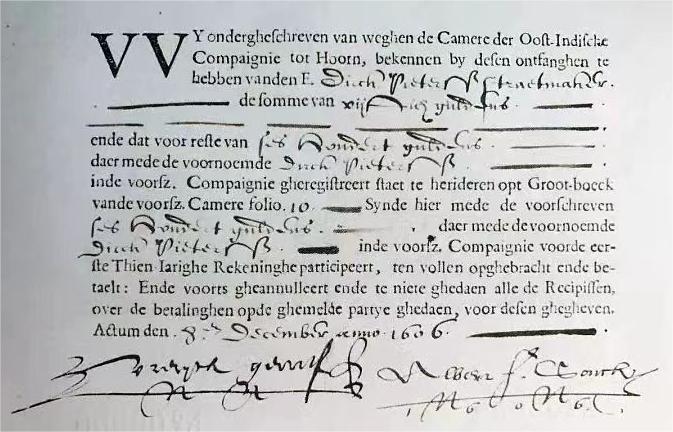 VVY ondergheschreven van weghen de Camere der Oost-Indische
Compaignie tot Hoorn, bekennen by desen ontfanghen te
hebben vanden E. Dirck Pietersz Straetmaker.
de somme van vijftich guldens
ende dat voor reste van ses hondert guldens
daer mede de voornoemde Dirck Pietersz
inde voorsz. Compaignie gheregistreert staet te herideren opt Groot-boeck
vande voorsz. Camere folio. 10. Synde hier mede de voorschreven
ses hondert guldens daer mede de voornoemde
Dirck Pietersz inde voorsz. Compaignie voorde eer-
ste Thien-Iarighe Rekeninghe participeert, ten vollen opghebracht ende be-
taelt: Ende voorts gheannulleert ende te niete ghedaen alle de Recipissen,
over de betalinghen opde ghemelde partye ghedaen, voor desen ghegheven.
Actum den 8en December anno 1606.